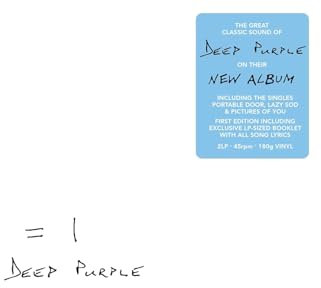 THE GREAT
CLASSIC SOUND OF
DEEP PURPLE
ON THEIR
NEW ALBUM
INCLUDING THE SINGLES
PORTABLE DOOR, LAZY SOD
& PICTURES OF YOU
FIRST EDITION INCLUDING
EXCLUSIVE LP-SIZED BOOKLET
WITH ALL SONG LYRICS
2LP · 45rpm · 180g VINYL
= 1
DEEP PURPLE